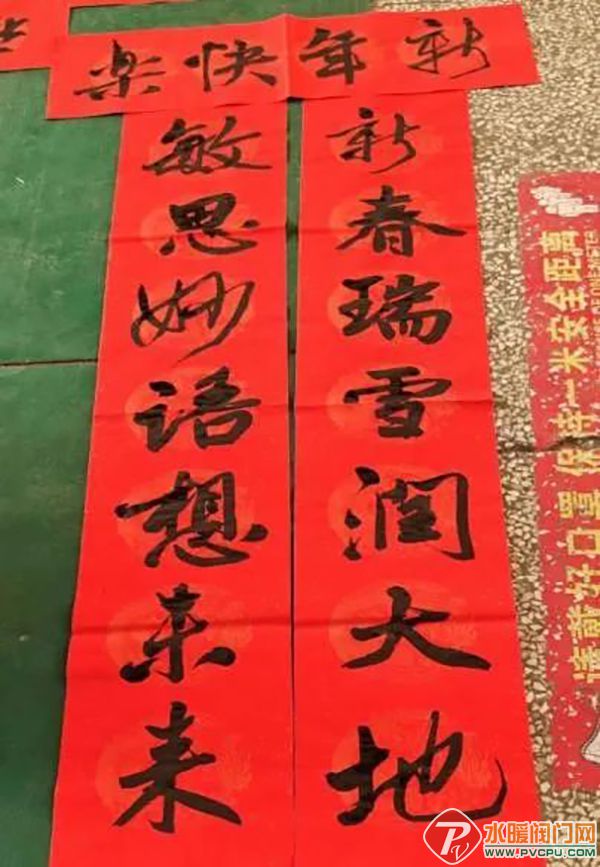 新年快樂
新春瑞雪润大地
敏思妙语想未来
请戴好口罩 保持一米安全距离
水暖阀门网
WWW.PVCPU.COM